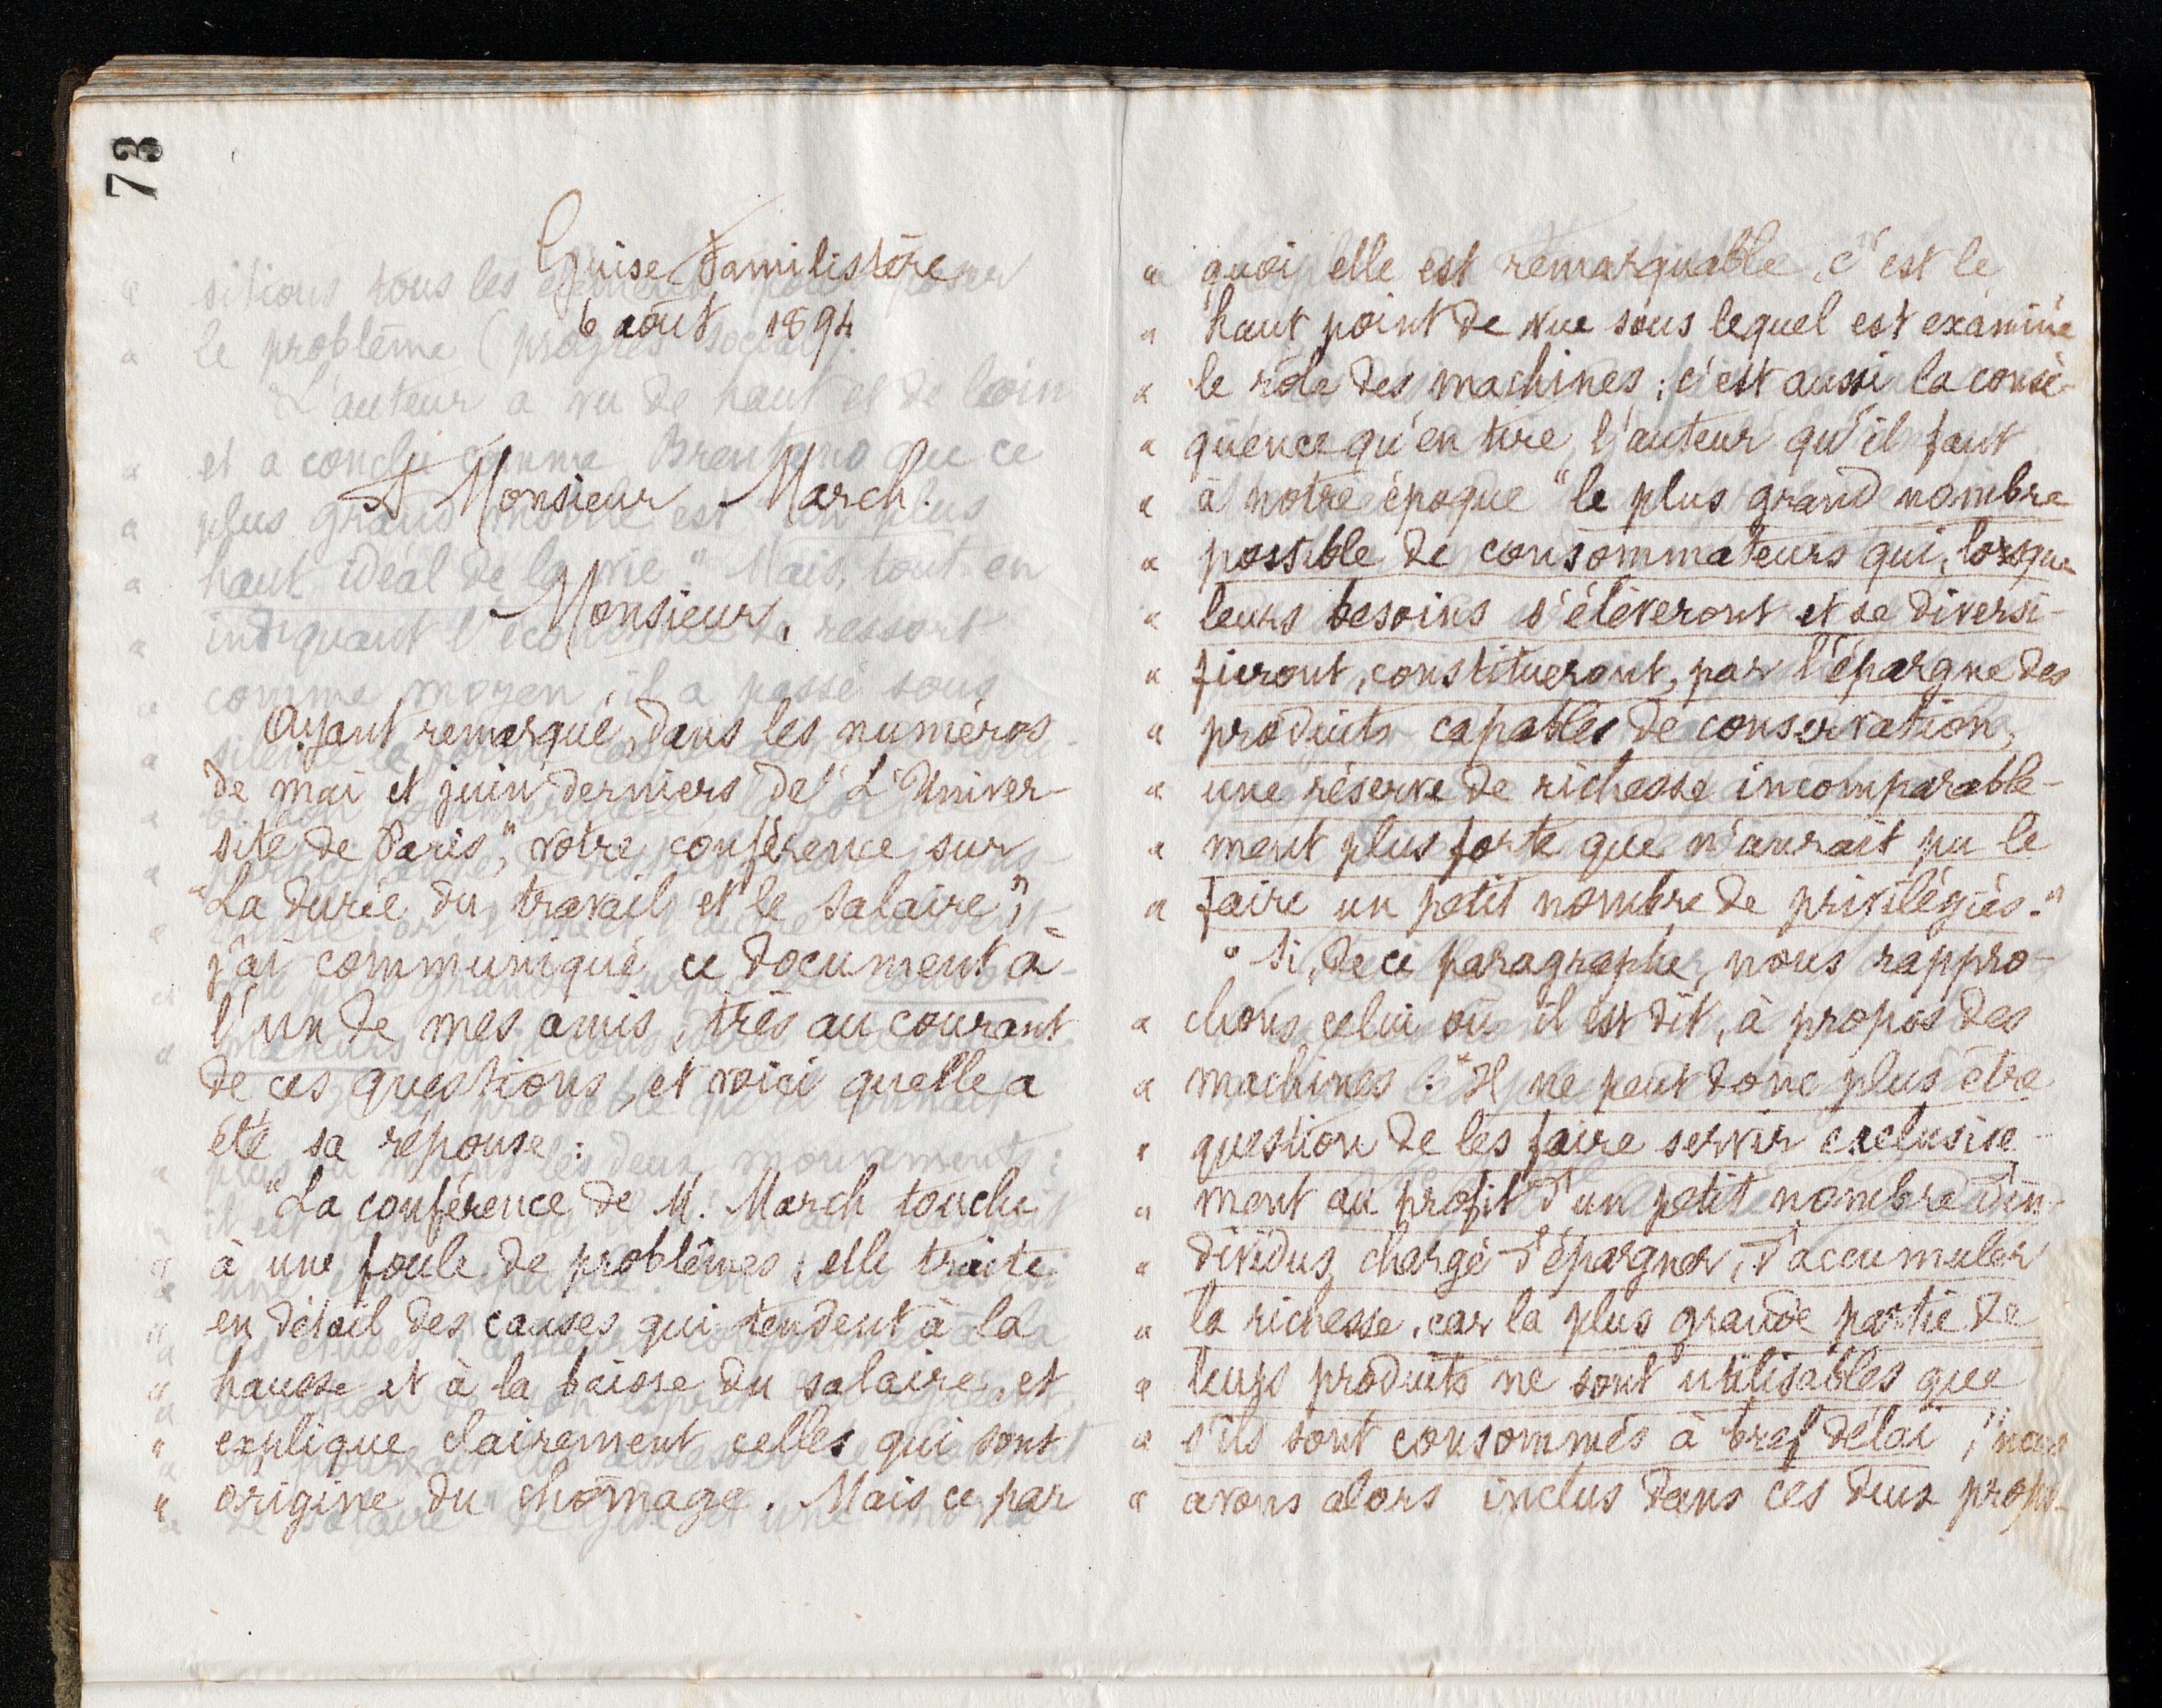 73
Guise Familistère
6 août 1894
A Monsieur March.
Monsieur,
Ayant remarqué, dans les numéros
de mai et juin derniers de "L'Univer-
sité de Paris", votre conférence sur
"La durée du travail et le salaire",
j'ai communiqué ce document à
l'un de mes amis, très au courant
de ces questions, et voici quelle a
été sa réponse:
"La conférence de M. March touche
" à une foule de problèmes; elle traite
" en détail des causes qui tendent à la
" hausse et à la baisse du salaire, et
" explique clairement celles qui sont
" origine du chômage. Mais ce par
" quoi elle est remarquable, c'est le
" haut point de vue sous lequel est examiné
" le rôle des machines; c'est aussi la consé-
" quence qu'en tire l'auteur qu'il faut
" à notre époque "le plus grand nombre
" possible de consommateurs qui, lorsque
" leurs besoins s'élèveront et se diversi-
" fieront, constitueront, par l'épargne des
" produits capables de conservation,
" une réserve de richesse incomparable-
" ment plus forte que n'aurait pu le
" faire un petit nombre de privilégiés."
" Si, de ce paragraphe, nous rappro-
" chons celui où il est dit, à propos des
" machines: "Il ne peut donc plus être
" question de les faire servir exclusive-
" ment au profit d'un petit nombre d'in-
" dividus, chargé d'épargner, d'accumuler
" la richesse, car la plus grande partie de
" leurs produits ne sont utilisables que
" s'ils sont consommés à bref délai", nous
" avons alors inclus dans ces deux propo-